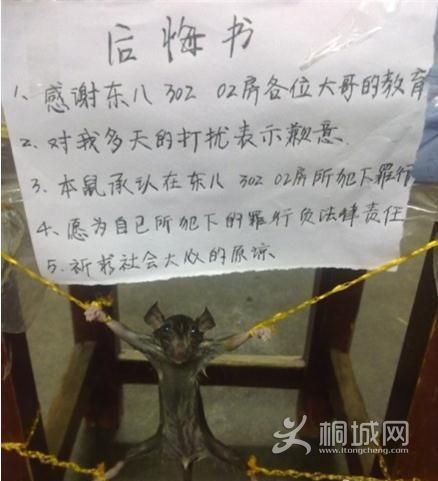 后悔书
1、感谢东八 302 02房各位大哥的教育
2、对我多天的打扰表示歉意.
3、本鼠承认在东八 302 02房所犯下罪行
4、愿为自己所犯下的罪行负法律责任
5、祈求社会大众的原谅.
桐城网
www.itongcheng.com